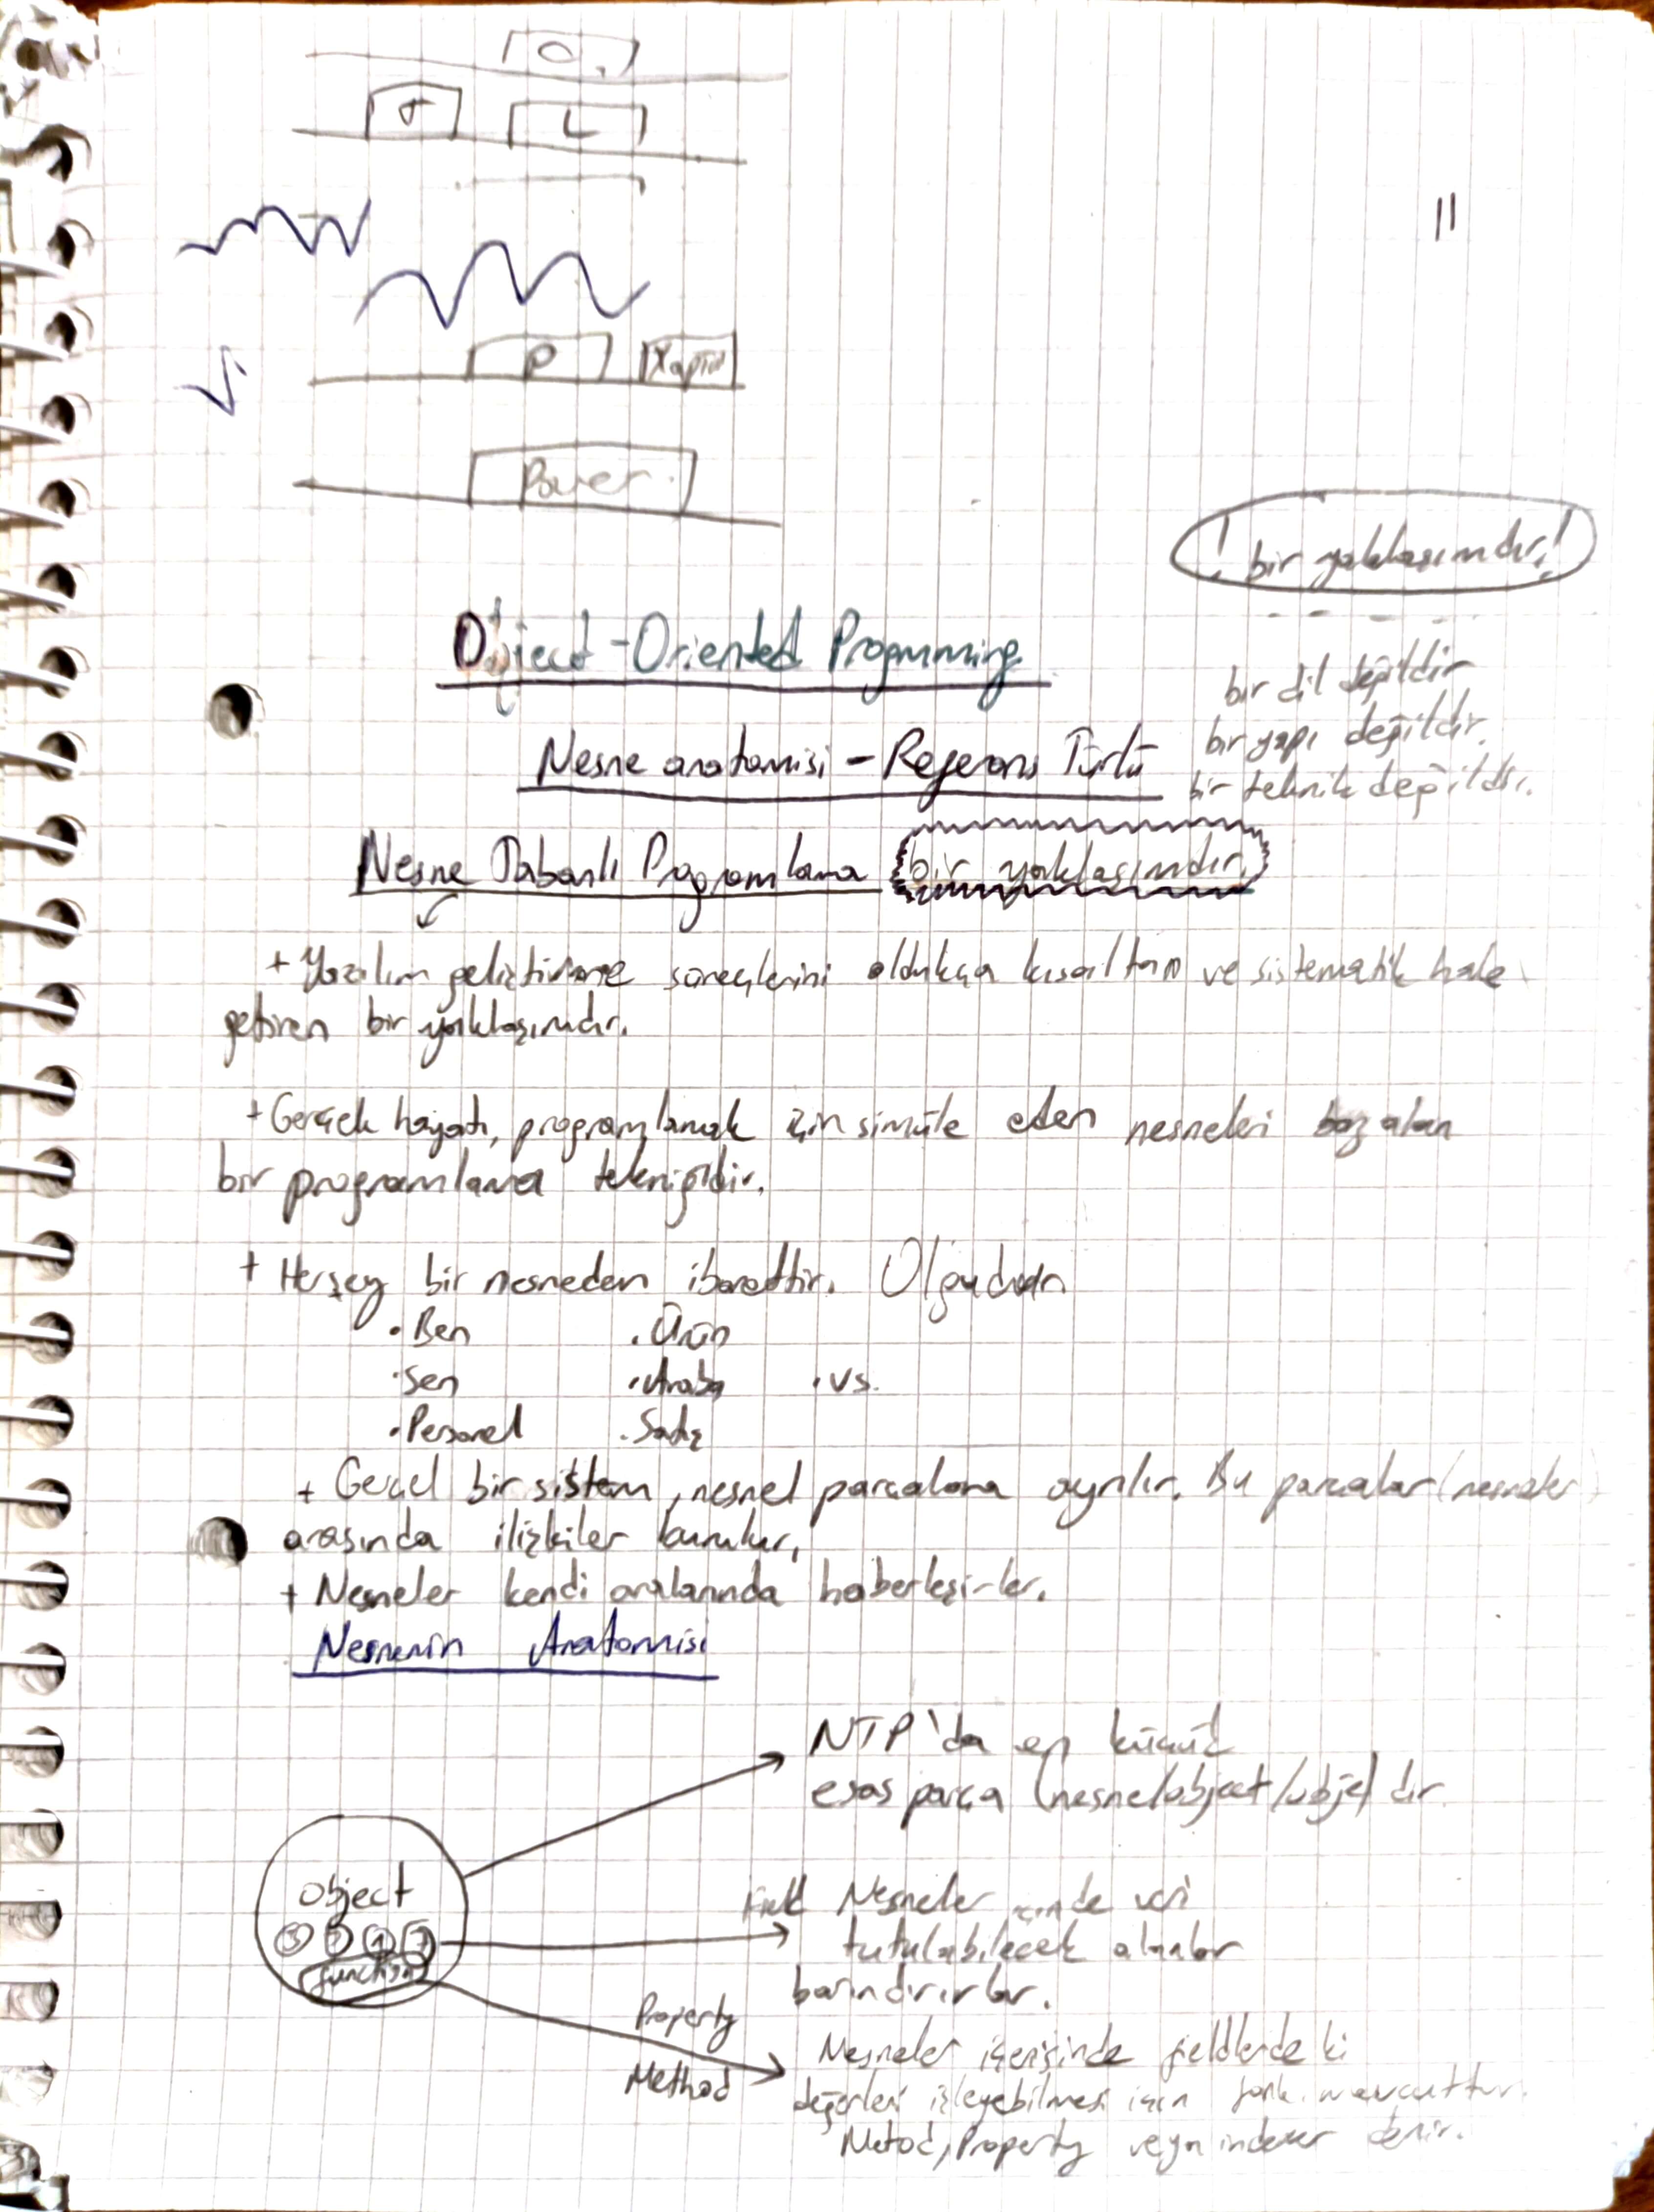 O.
T L
11
P
Power
! bir yaklaşımdır!
Object-Oriented Programming
bir dil değildir
bir yapı değildir.
bir teknik değildir.
Nesne anatomisi - Referans Türlü
Nesne Tabanlı Programlama bir yaklaşımdır.
+ Yazılım geliştirme süreçlerini oldukça kısaltan ve sistematik hale
getiren bir yaklaşımdır.
+ Gerçek hayatı, programlamak için simüle eden nesneleri baz alan
bir programlama tekniğidir.
+ Herşey bir nesneden ibarettir. Olgudan
• Ben • Ürün
• Sen • Araba • vs.
• Personel • Satış
+ Gerçel bir sistem, nesnel parçalara ayrılır. Bu parçalar (nesneler)
arasında ilişkiler kurulur,
+ Nesneler kendi aralarında haberleşirler.
Nesnenin Anatomisi
NTP'da en küçük
esas parça (nesne/object/obje) dır.
object
3 1
function
Field Nesneler içinde veri
tutulabilecek alanlar
barındırırlar.
Property
Method
Nesneler içerisinde fieldlerdeki
değerleri işleyebilmesi için fonk. mevcuttur.
Metod, Property veya indexer denir.